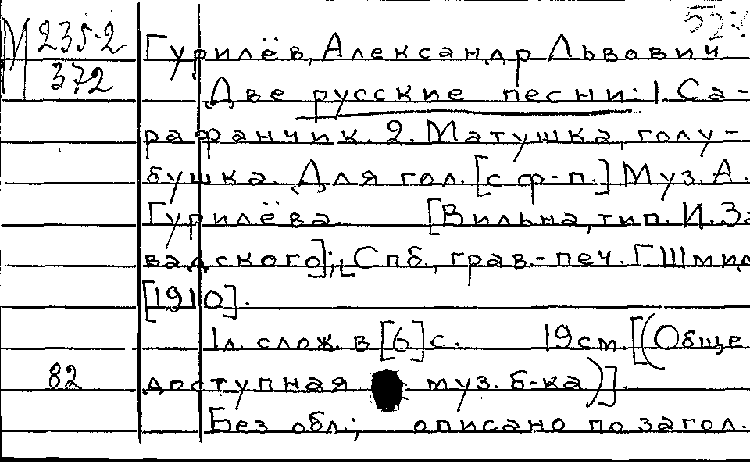 М 235-2
372
Гурилёв, Александр Львович
Две русские песни: 1. Са-
рафанчик. 2. Матушка, голу-
бушка. Для гол. [с ф-п.] Муз. А.
Гурилёва. [Вильна, тип. И. За
вадского]; Спб., грав.-печ. Г Шмид
[1910].
1л. слож. в [6] с. 19 см. [(Обще
82 доступная муз. б-ка)]
Без обл.; описано по загол.